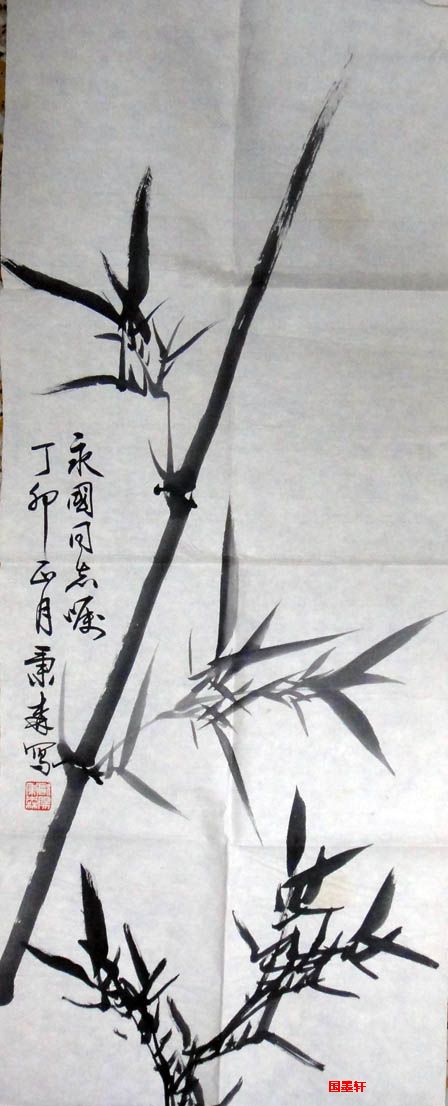 永國同志嘱
丁卯正月秉森写
国墨轩